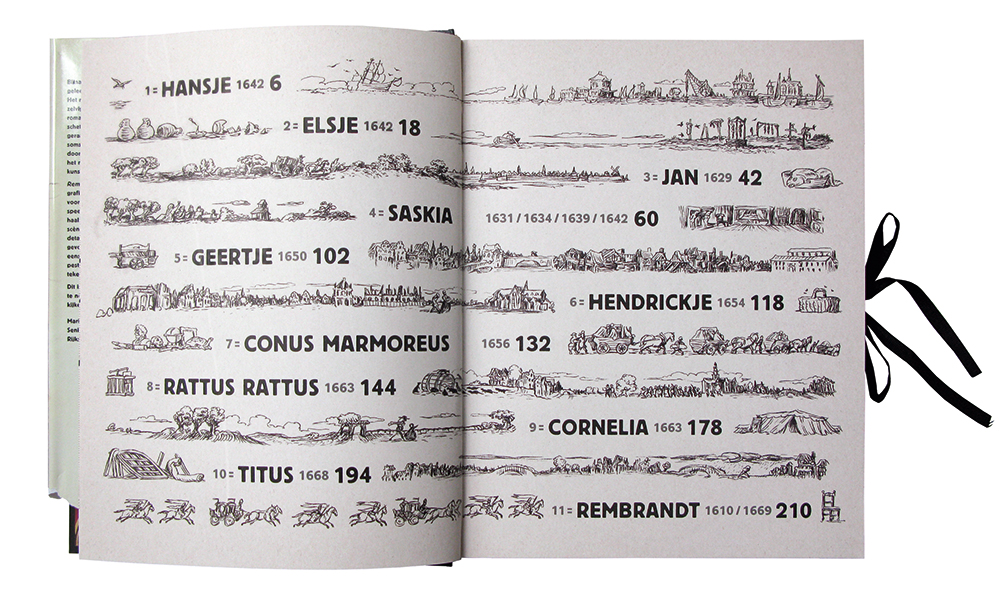 1= HANSJE 1642 6
2= ELSJE 1642 18
3= JAN 1629 42
4= SASKIA 1631 / 1634 / 1639 / 1642 60
5= GEERTJE 1650 102
6= HENDRICKJE 1654 118
7= CONUS MARMOREUS 1656 132
8= RATTUS RATTUS 1663 144
9= CORNELIA 1663 178
10= TITUS 1668 194
11= REMBRANDT 1610 / 1669 210